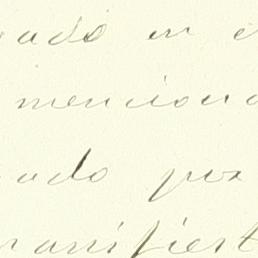 ado en e
menciona
ado por
manifiest